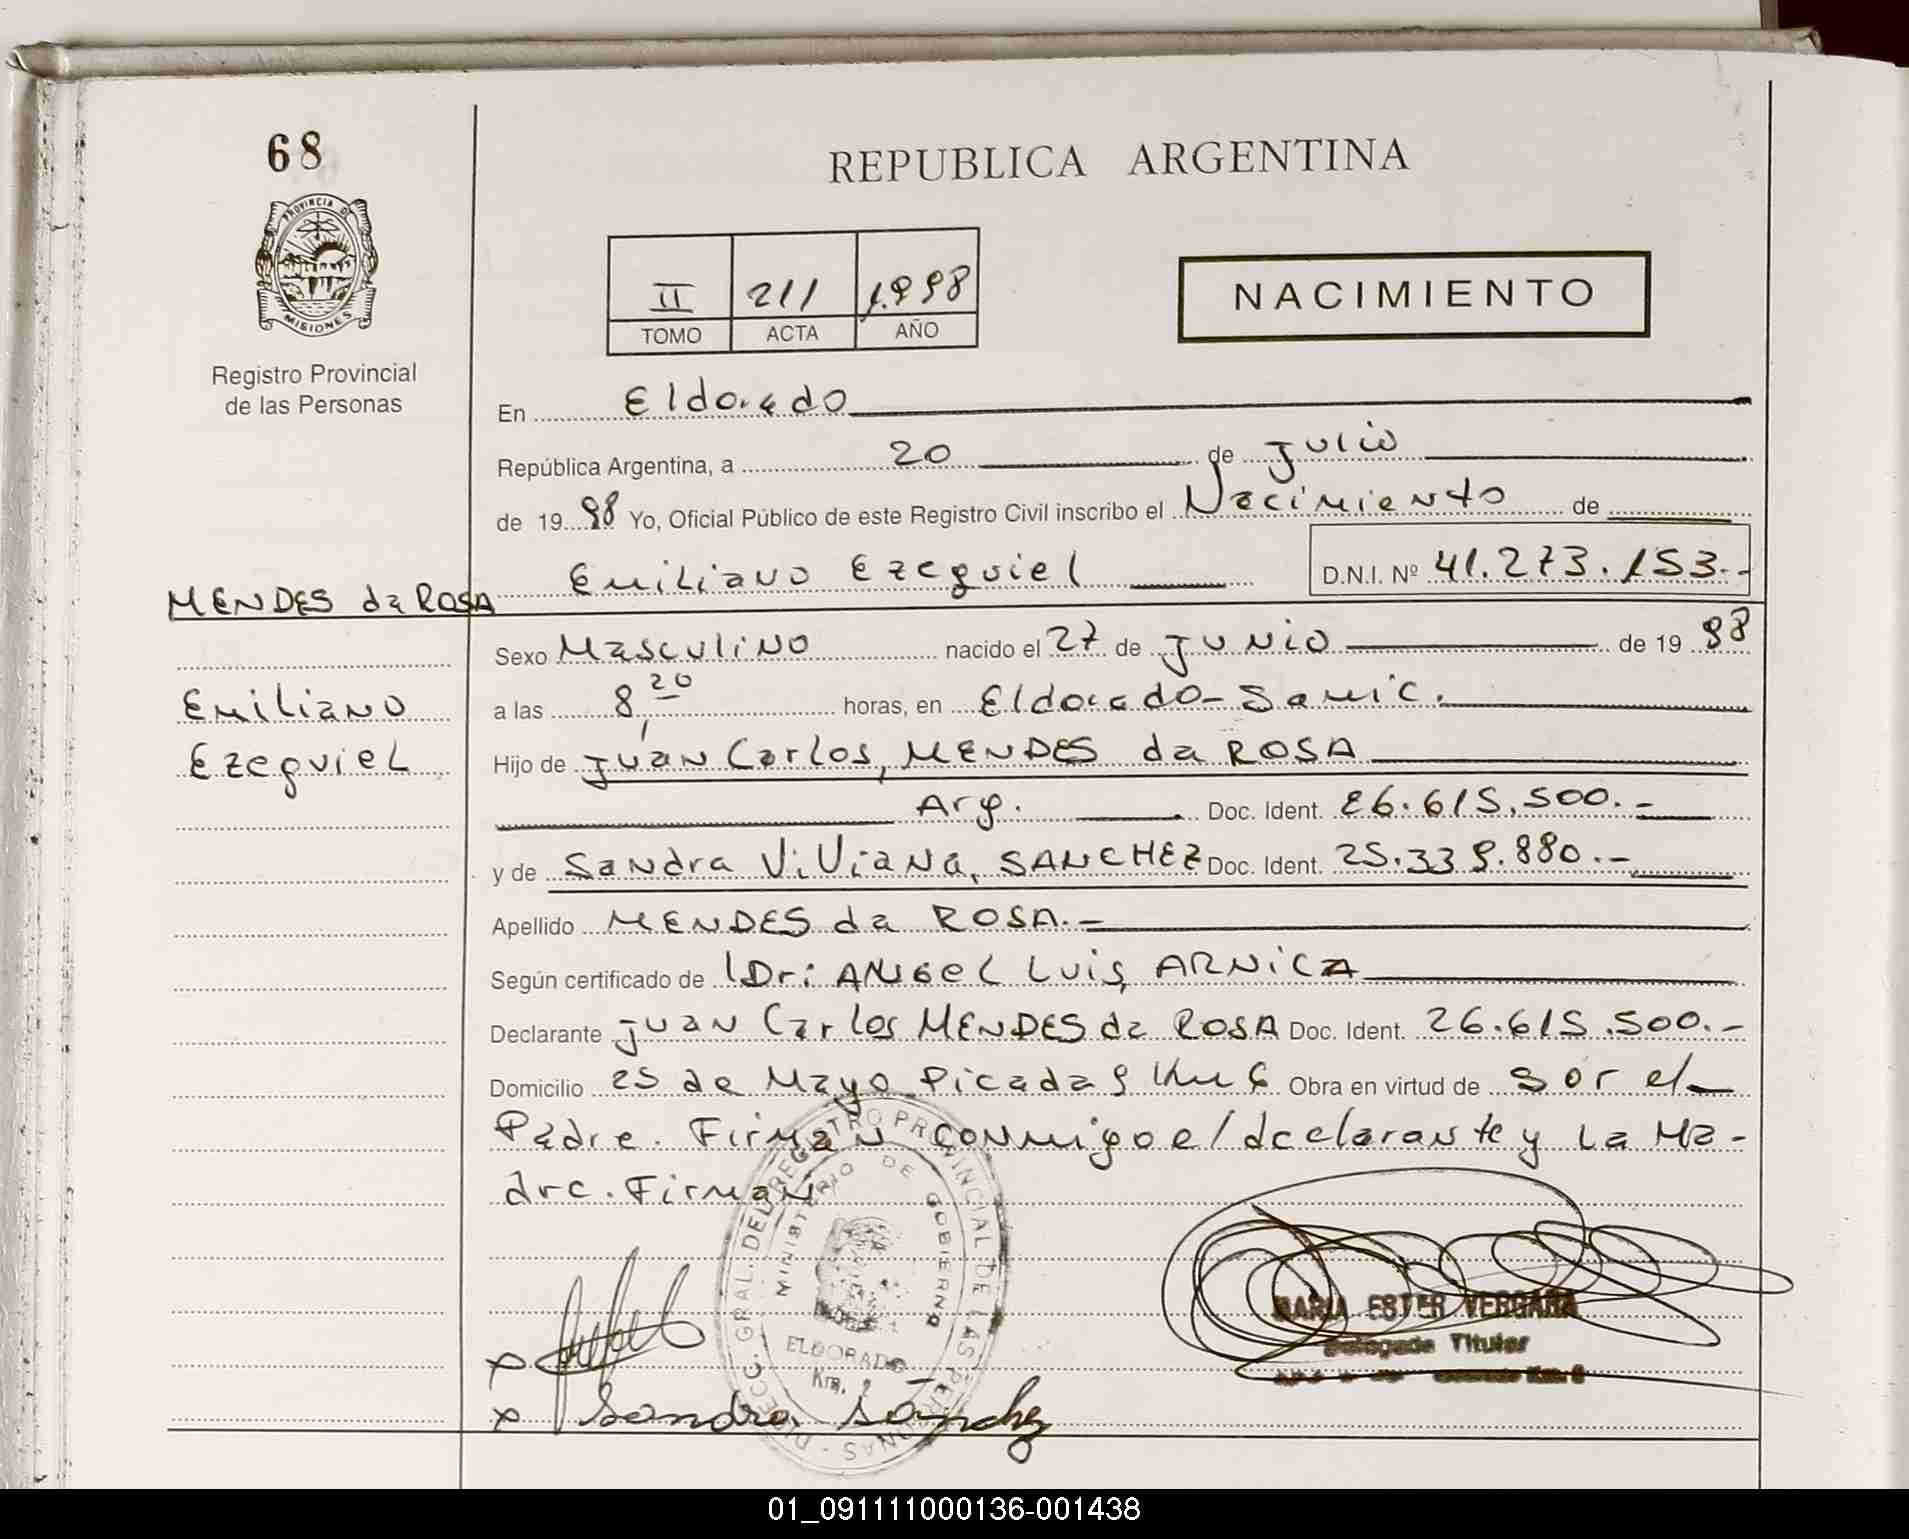 68
REPUBLICA ARGENTINA
PROVINCIA DE
MISIONES
Registro Provincial
de las Personas
II 211 1.998
TOMO ACTA AÑO
NACIMIENTO
En Eldorado
República Argentina, a 20 de Julio
de 1998 Yo, Oficial Público de este Registro Civil inscribo el Nacimiento de
Emiliano Ezequiel D.N.I. Nº 41.273.153.-
MENDES da ROSA
Emiliano
Ezequiel
Sexo Masculino nacido el 27 de Junio de 1998
a las 8,20 horas, en Eldorado-Samic.
Hijo de Juan Carlos, MENDES da ROSA
Arg. Doc. Ident. 26.615.500.-
y de Sandra Viviana, SANCHEZ Doc. Ident. 25.339.880.-
Apellido MENDES da ROSA.-
Según certificado de Dr: ANGEL Luis, ARNICA
Declarante Juan Carlos MENDES da ROSA Doc. Ident. 26.615.500.-
Domicilio 25 de Mayo Picada 9 Km 6 Obra en virtud de Sor el
Padre. Firman conmigo el declarante y La Ma-
dre. Firman
DIRECC. GRAL. DEL REGISTRO PROVINCIAL DE LAS PERSONAS
MINISTERIO DE GOBIERNO
ELDORADO
Km. 2
MARIA ESTER VERGARA
Delegada Titular
x
x Sandra Sánchez
01_091111000136-001438